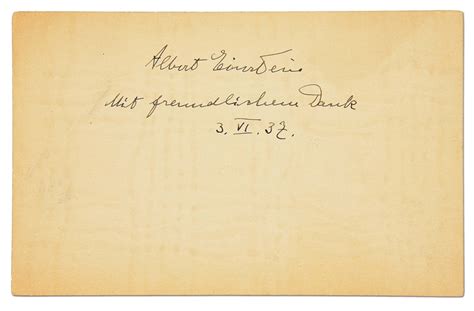 Albert Einstein.
Mit freundlichem Dank
3. VI. 37.